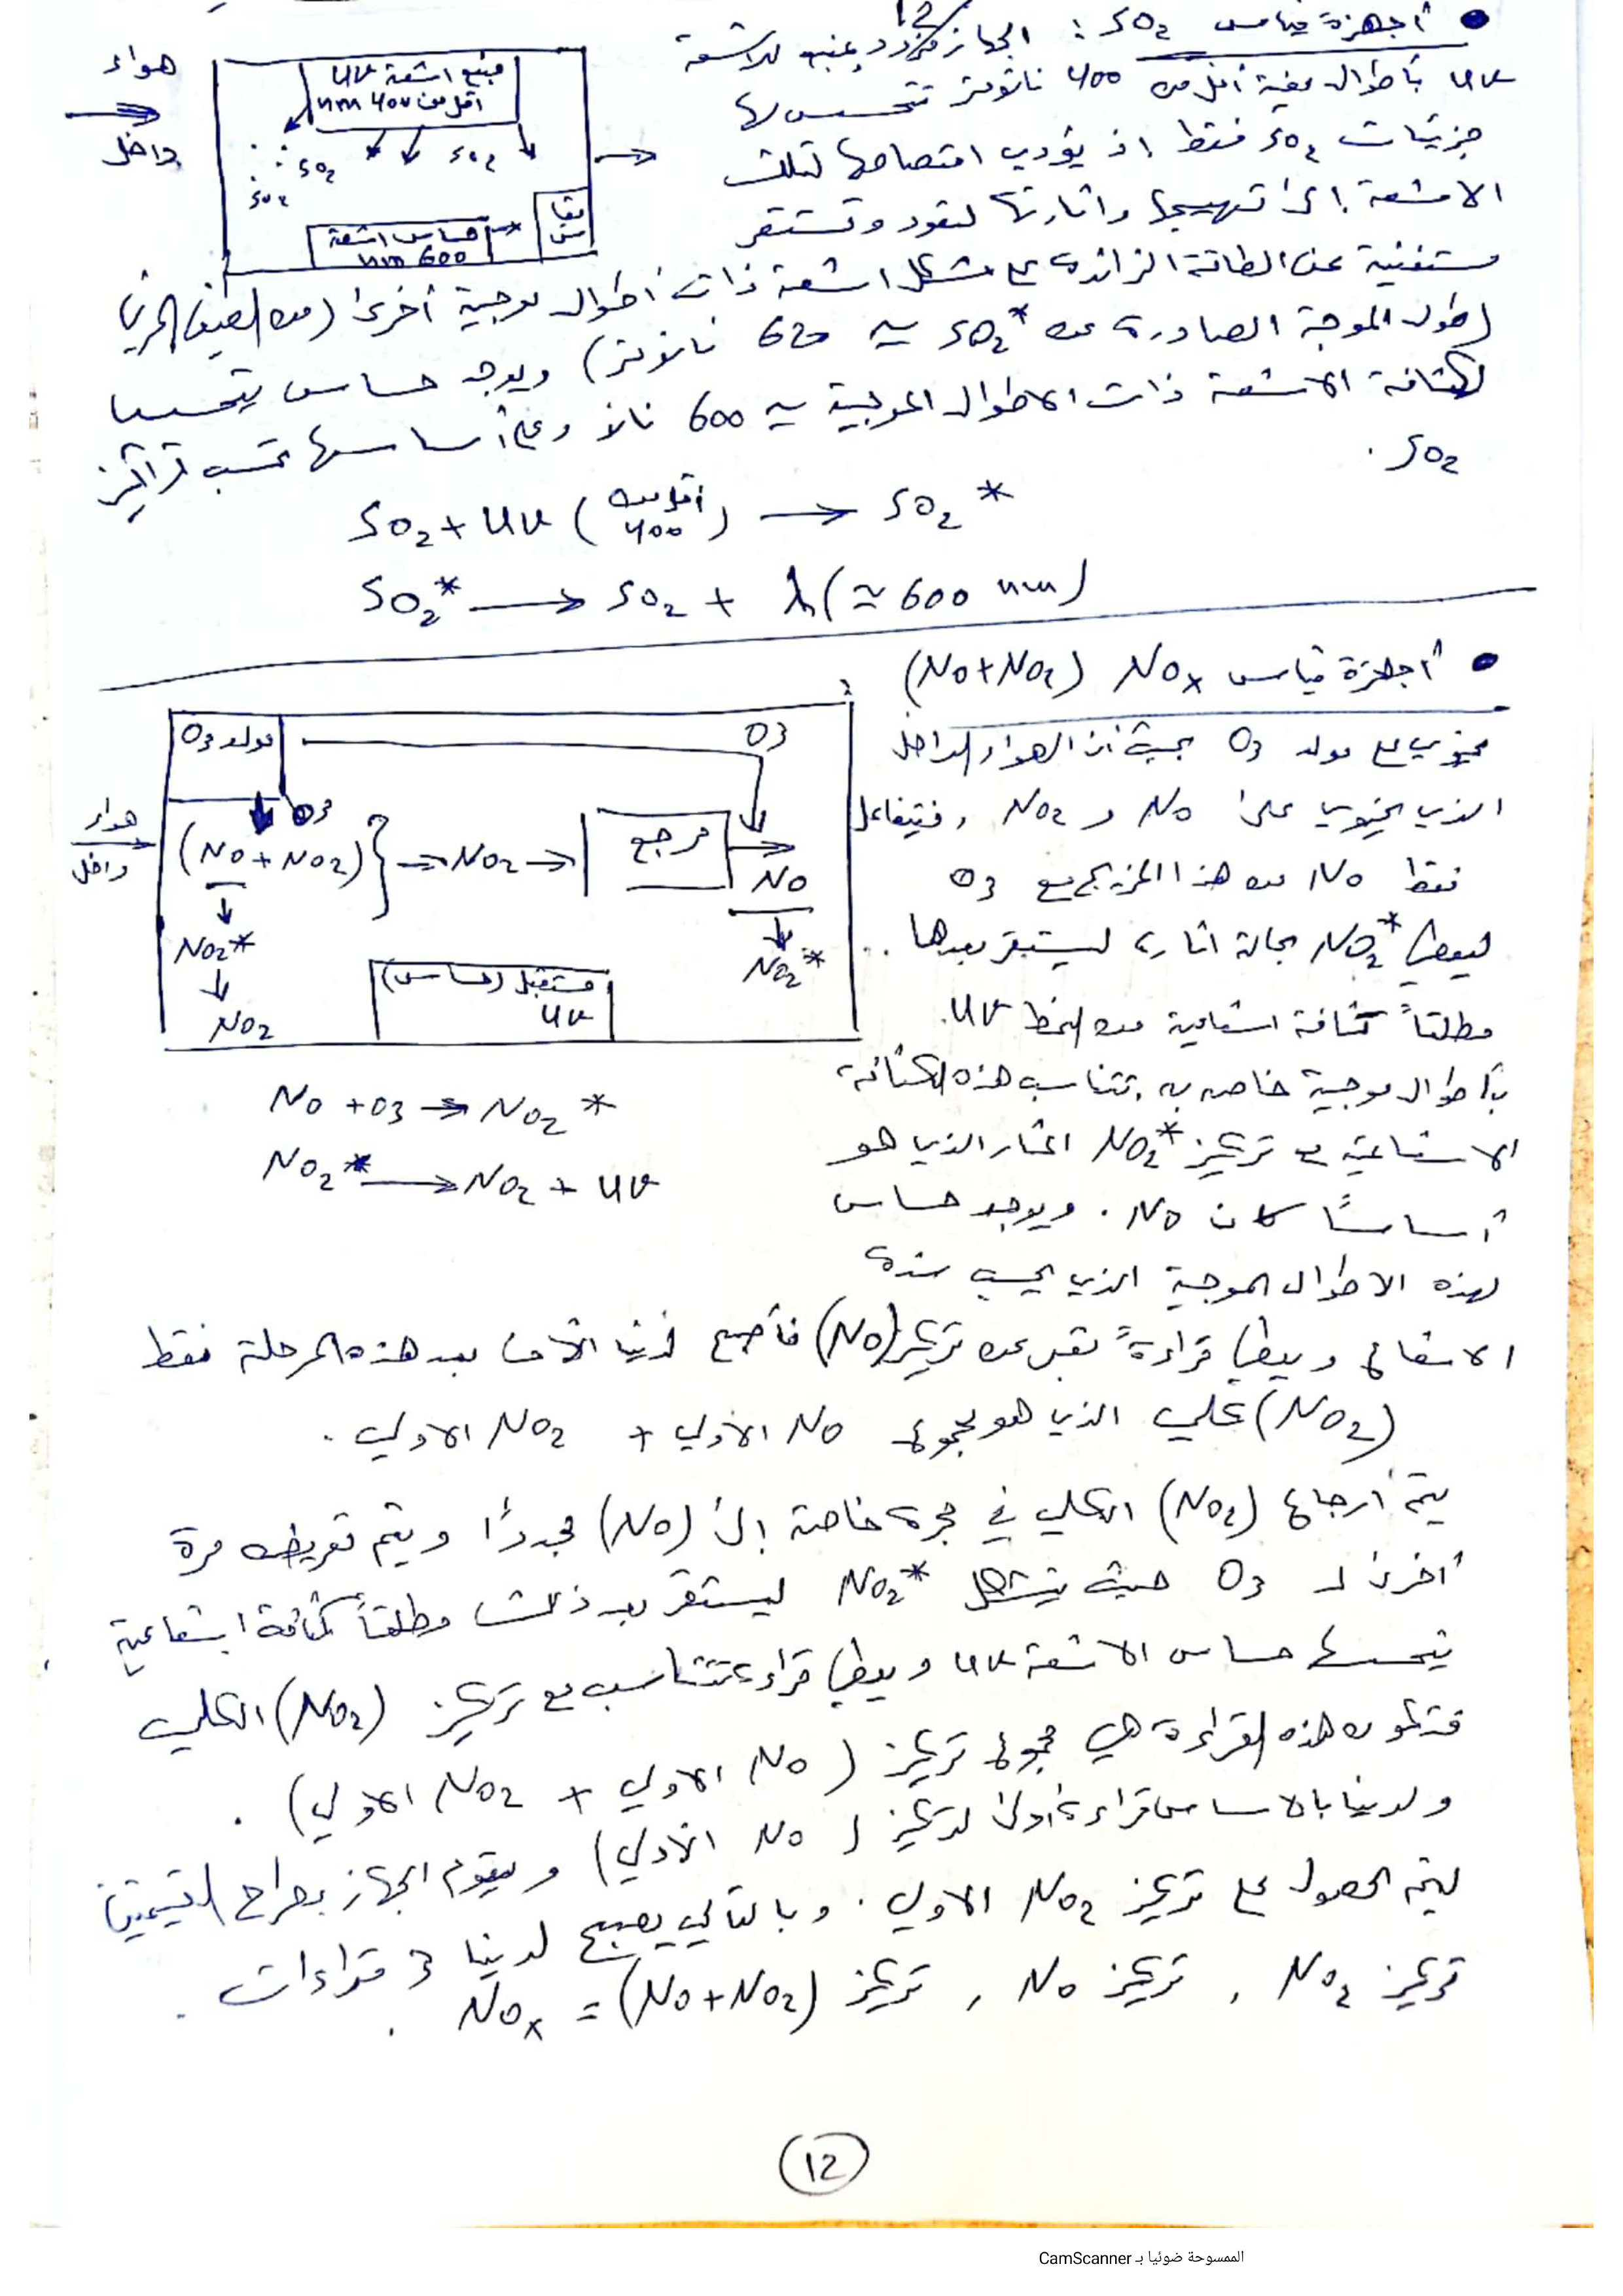 • أجهزة قياس SO2 : الجهاز مزود بمنبع للاشعة
UV بأطوال موجية أقل من 400 نانومتر تتحسس لها
جزيئات SO2 فقط إذ يؤدي امتصاصها لتلك
الاشعة إلى تهييجها واثارتها لتعود وتستقر
مستغنية عن الطاقة الزائدة على شكل اشعة ذات أطوال موجية أخرى (من الطيف المرئي
(طول الموجة الصادرة عن SO2* ~ 620 نانومتر) ويوجد حساس يتحسس
لكثافة الاشعة ذات الاطوال الموجية ~ 600 نانو وعلى أساسها تحسب تراكيز
SO2 .
هواء
داخل
منبع اشعة UV
اقل من 400 nm
SO2
SO2
SO2
حساس اشعة
600 nm
مقياس
SO2 + UV (اقل من 400) → SO2*
SO2* → SO2 + λ (≈ 600 nm)
• أجهزة قياس NOx (NO+NO2)
يحتوي على مولد O3 بحيث أن الهواء الداخل
الذي يحتوي على NO و NO2 , فيتفاعل
فقط NO من هذا المزيج مع O3
ليعطي NO2* بحالة اثارة ليستقر بعدها ..
مطلقاً كثافة اشعاعية من النمط UV.
بأطوال موجية خاصة به , تتناسب هذه الكثافة
الاشعاعية مع تركيز NO2* المثار الذي هو
أساساً كان NO . ويوجد حساس
لهذه الاطوال الموجية الذي يحسب شدة
الاشعاع ويعطي قراءةً تعبر عن تركيز (NO) فأصبح لدينا الآن بعد هذه المرحلة فقط
(NO2) كلي الذي هو مجموع NO الأولي + NO2 الاولي .
مولد O3
O3
O3
هواء
داخل
(NO + NO2) } → NO2 →
مرجع
NO
NO2*
NO2*
NO2
مستقبل (حساس)
UV
NO + O3 → NO2*
NO2* → NO2 + UV
يتم أرجاع (NO2) الكلي في حجرة خاصة إلى (NO) مجددًا ويتم تعريضه مرة
أخرى لـ O3 حيث يتشكل NO2* ليستقر بعد ذلك مطلقاً كثافة اشعاعية
يتحسسها حساس الاشعة UV ويعطي قراءة تتناسب مع تركيز (NO2) الكلي
فتكون هذه القراءة هي مجموع تركيز (NO الاولي + NO2 الاولي) .
ولدينا بالاساس قراءة أولى لتركيز (NO الأولي) ويقوم الجهاز بطرح القيمتين
ليتم الحصول على تركيز NO2 الاولي . وبالتالي يصبح لدينا 3 قراءات .
تركيز NO2 , تركيز NO , تركيز (NO+NO2) = NOx .
12
الممسوحة ضوئيا بـ CamScanner